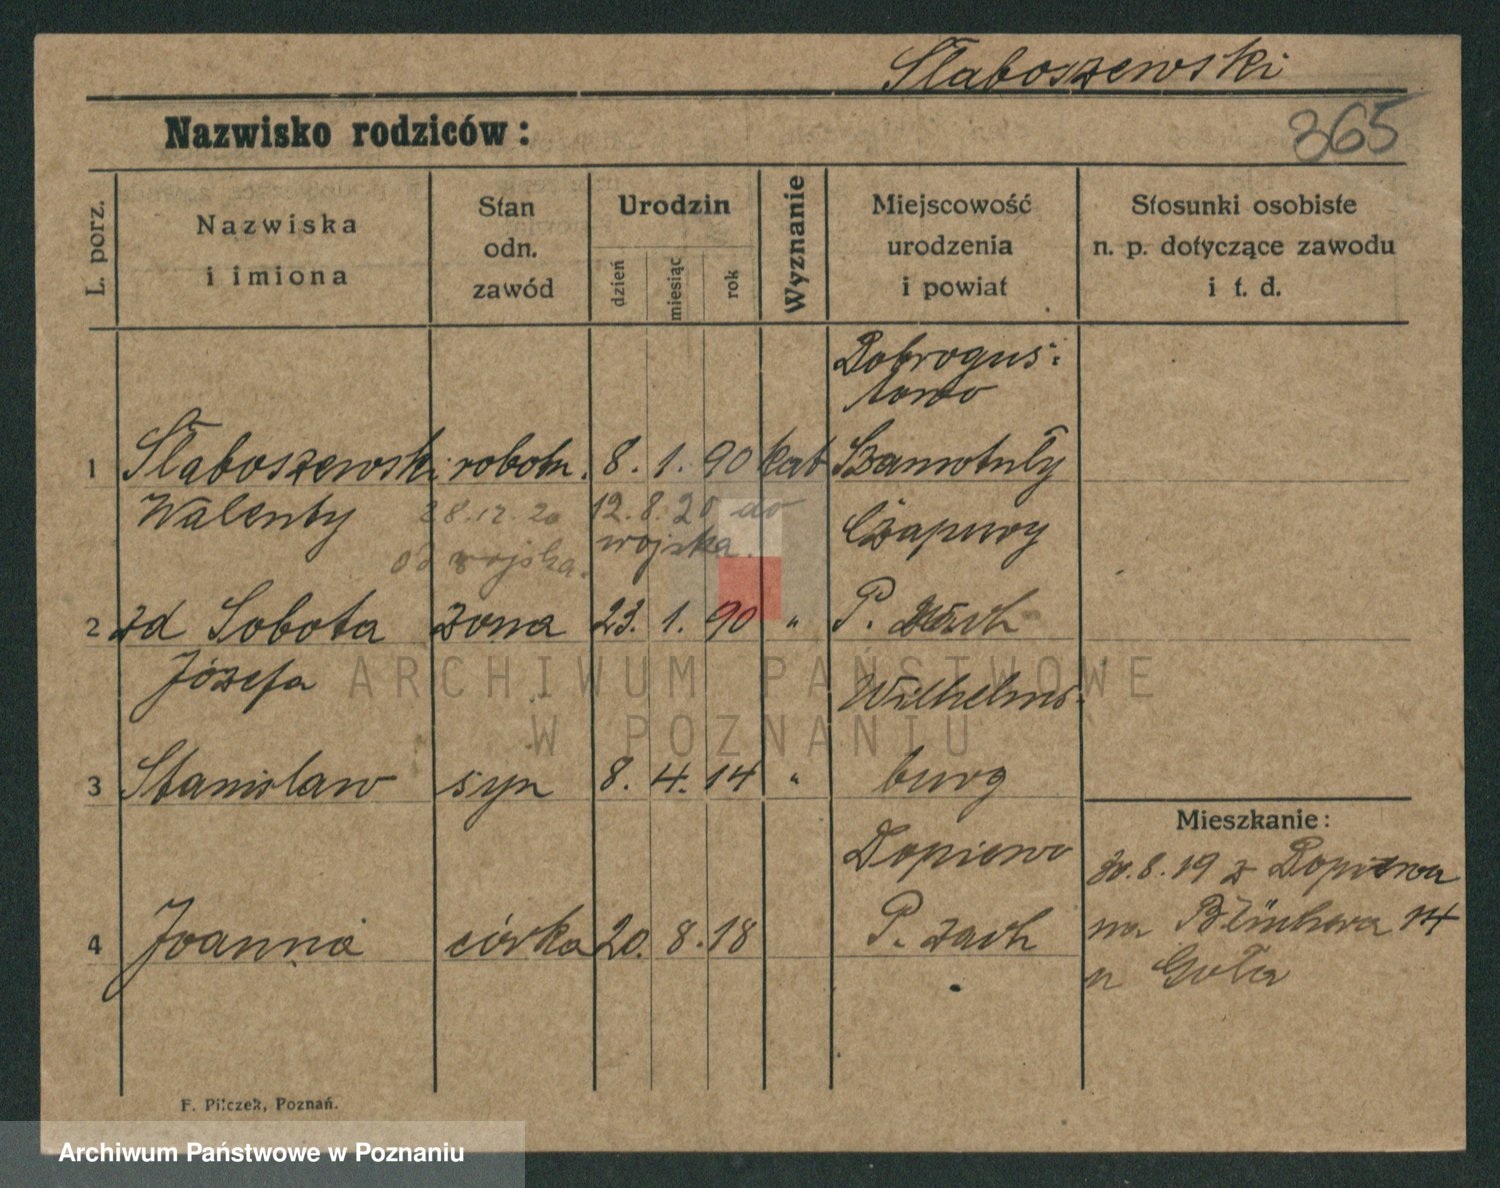 Słaboszewski
Nazwisko rodziców:
365
L. porz.
Nazwiska
i imiona
Stan
odn.
zawód
Urodzin
dzień
miesiąc
rok
Wyznanie
Miejscowość
urodzenia
i powiat
Stosunki osobiste
n. p. dotyczące zawodu
i t. d.
Dobrogus-
towo
1 Słaboszewski robotn. 8. 1. 90 kat Szamotuły
Walenty 28.12.20 12.8.20 do Czapury
od wojska. wojska.
2 zd Sobota żona 23. 1. 90 " P. Zach
Józefa Wilhelms-
3 Stanisław syn 8. 4. 14 " burg
Dopiewo
4 Joanna córka 20. 8. 18 P. zach
Mieszkanie:
30.8.19 z Dopiewa
na 14
u Goła
F. Pilczek, Poznań.
ARCHIWUM PAŃSTWOWE
W POZNANIU
Archiwum Państwowe w Poznaniu